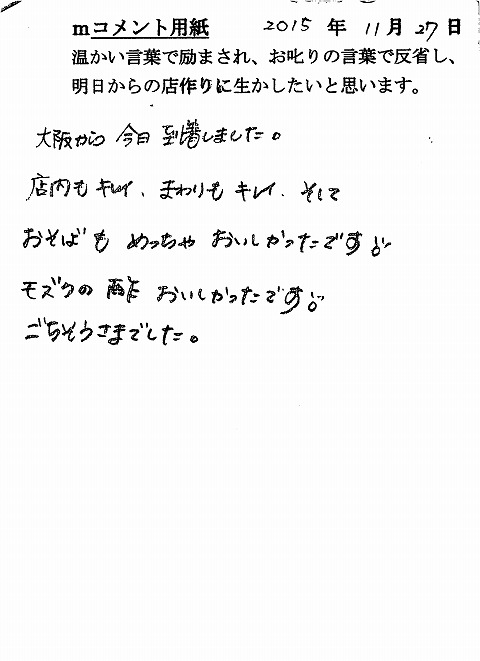 mコメント用紙 2015 年 11月 27日
温かい言葉で励まされ、お叱りの言葉で反省し、
明日からの店作りに生かしたいと思います。
大阪から 今日 到着しました。
店内も キレイ、まわりも キレイ、そして
おそばも めっちゃ おいしかったです!!
モズクの 酢 おいしかったです!!
ごちそうさまでした。